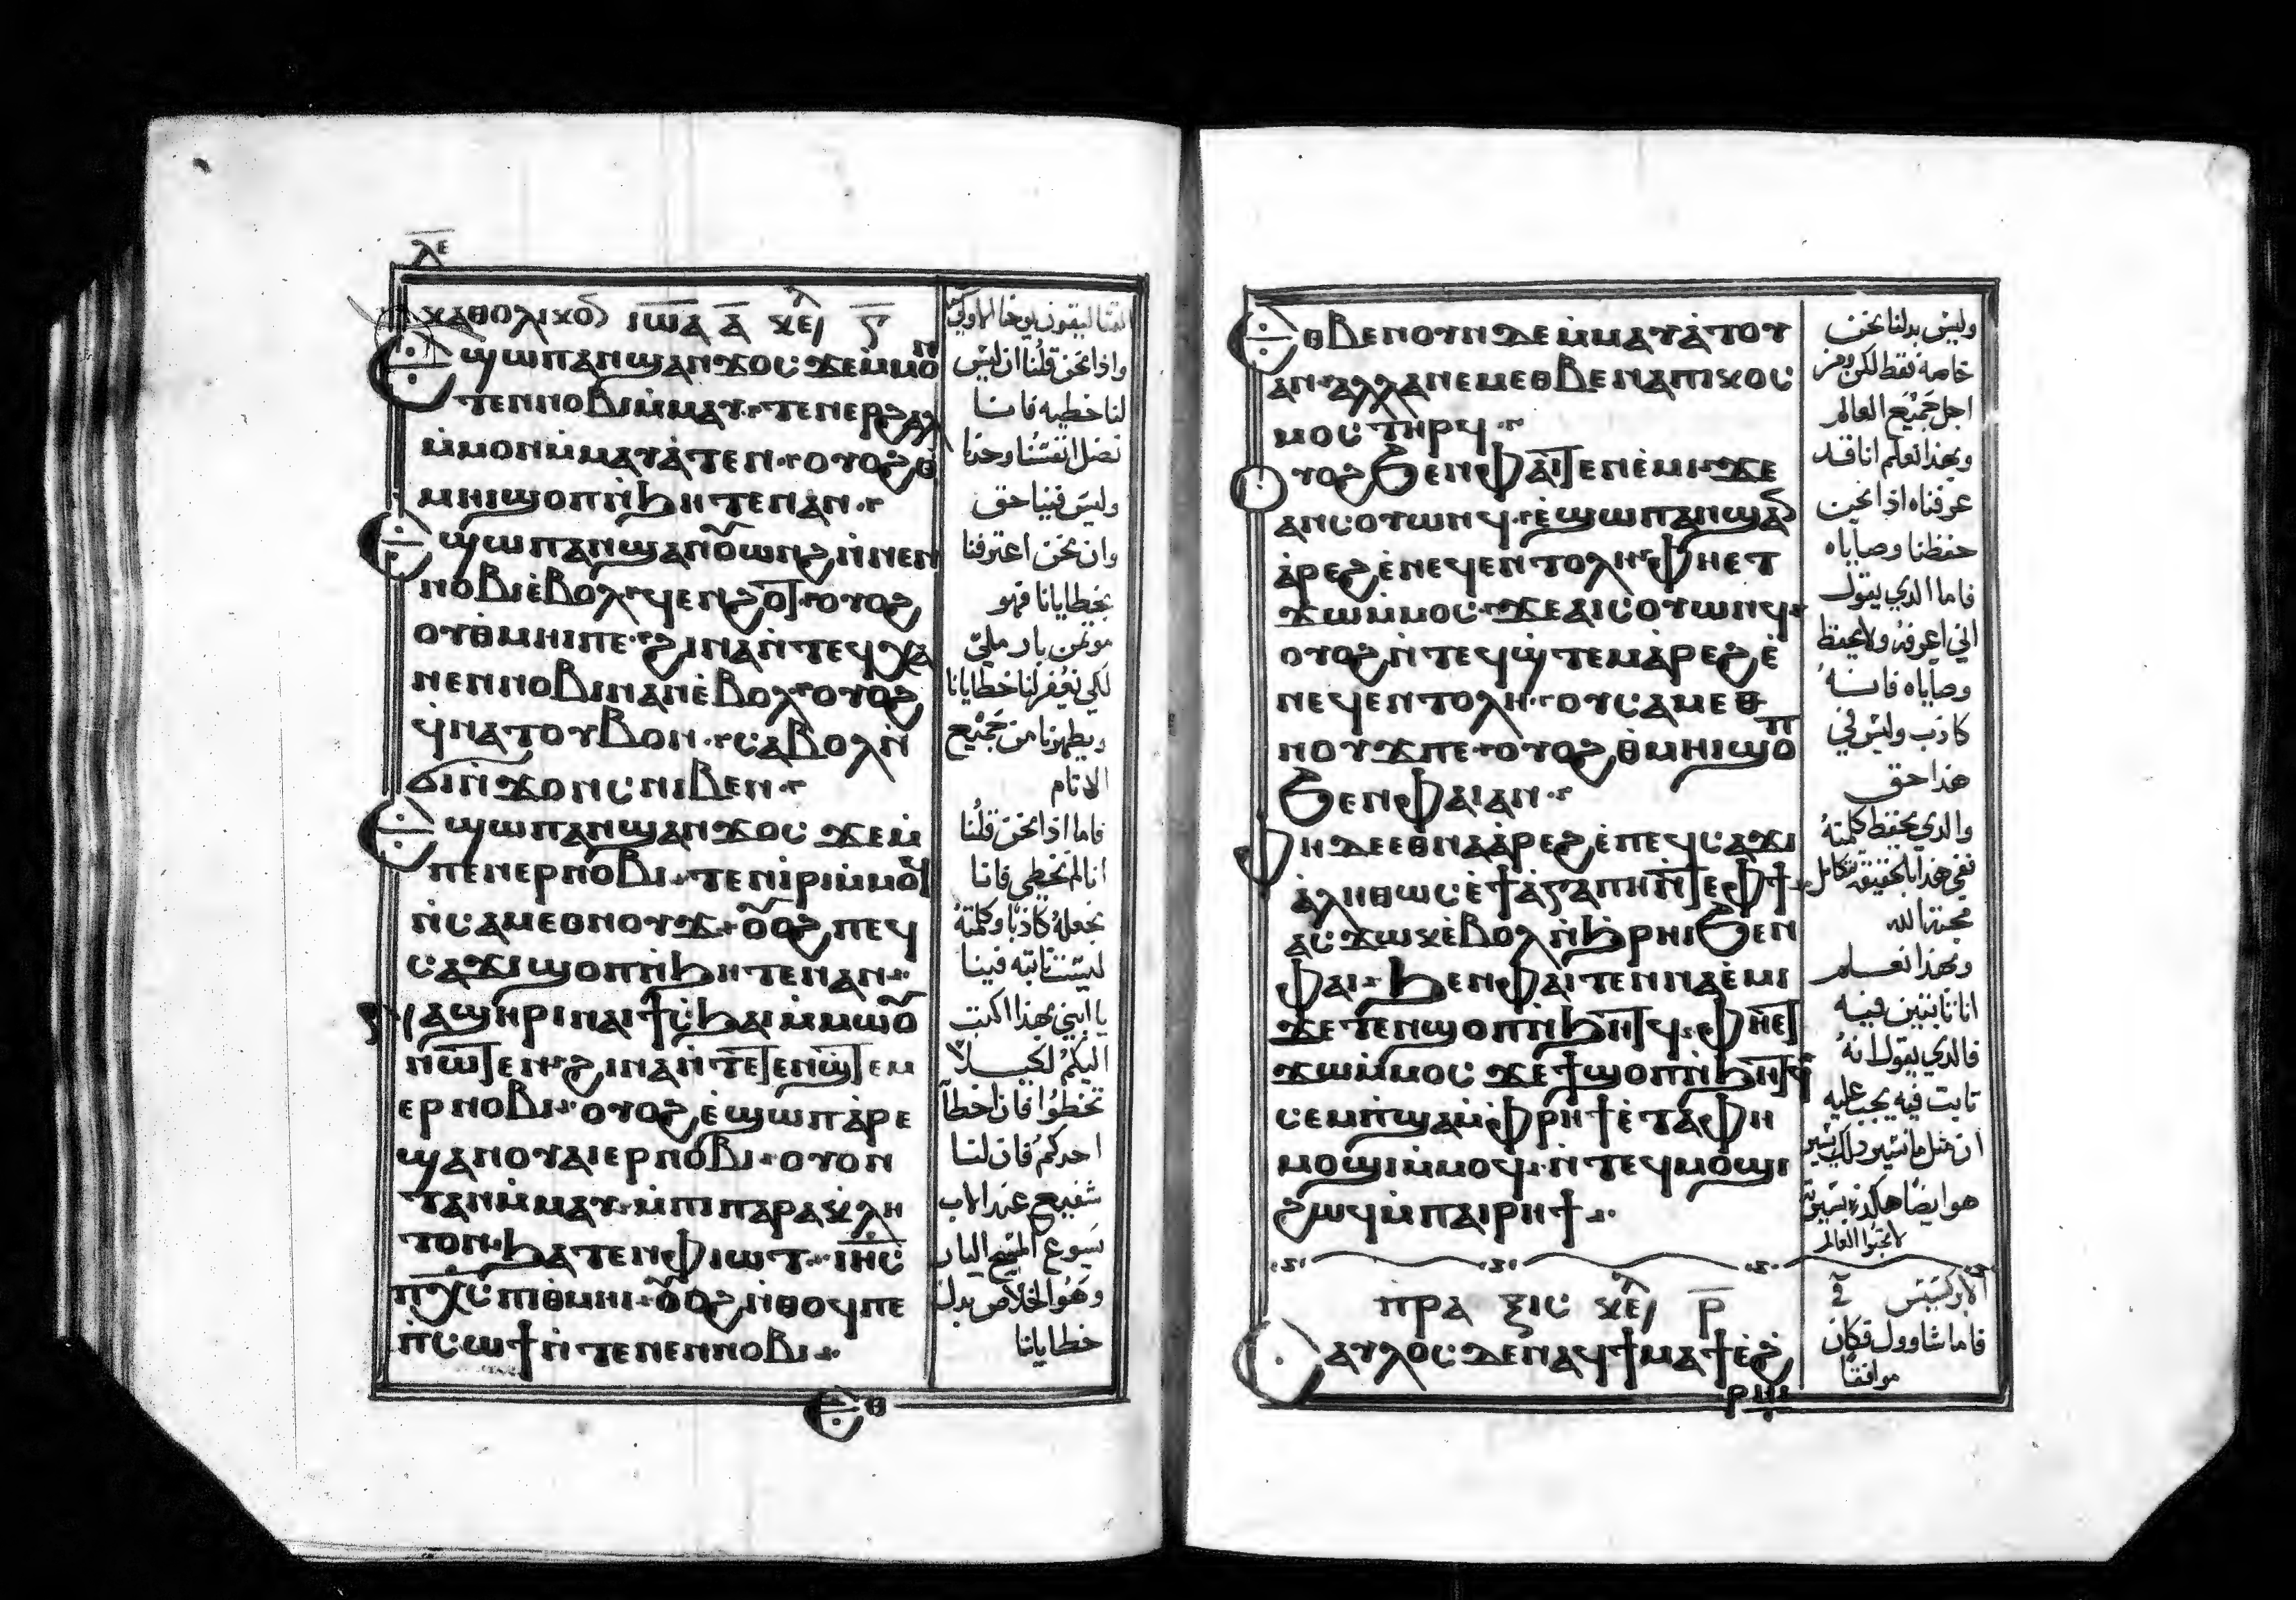 ⲗⲉ
ⲕⲁⲑⲟⲗⲓⲕⲟⲛ ⲓⲱⲁ ⲁ̅ ⲕⲉ ⲋ̅
Ⲉϣⲱⲡ ⲁⲛϣⲁⲛϫⲟⲥ ϫⲉ ⲙ̀ⲙⲟⲛ
ⲧⲉⲛⲛⲟⲃⲓ ⲙ̀ⲙⲁⲩ ⲧⲉⲛⲉⲣϩⲁⲗ
ⲙ̀ⲙⲟⲛ ⲙ̀ⲙⲁⲩⲁ̀ⲧⲉⲛ ⲟⲩⲟϩ ⲑ̀
ⲙⲏⲓ ϣⲟⲡ ⲛ̀ϧⲏⲧⲉⲛ ⲁⲛ
Ⲉϣⲱⲡ ⲁⲛϣⲁⲛⲟⲩⲱⲛϩ ⲛ̀ⲛⲉⲛ
ⲛⲟⲃⲓ ⲉ̀ⲃⲟⲗ ϥⲉⲛϩⲟⲧ ⲟⲩⲟϩ
ⲟⲩⲑ̀ⲙⲏⲓ ⲡⲉ ϩⲓⲛⲁ ⲛ̀ⲧⲉϥⲭⲁ
ⲛⲉⲛⲛⲟⲃⲓ ⲛⲁⲛ ⲉ̀ⲃⲟⲗ ⲟⲩⲟϩ
ϥ̀ⲛⲁⲧⲟⲩⲃⲟⲛ ⲥⲁⲃⲟⲗ ⲛ̀
ϭⲓⲛ̀ϫⲟⲛⲥ ⲛⲓⲃⲉⲛ
Ⲉϣⲱⲡ ⲁⲛϣⲁⲛϫⲟⲥ ϫⲉ ⲙ̀
ⲡⲉⲛⲉⲣⲛⲟⲃⲓ ⲧⲉⲛⲓ̀ⲣⲓ ⲙ̀ⲙⲟϥ
ⲛ̀ⲥⲁⲙⲉⲑⲛⲟⲩϫ ⲟⲩⲟϩ ⲡⲉϥ
ⲥⲁϫⲓ ϣⲟⲡ ⲛ̀ϧⲏⲧⲉⲛ ⲁⲛ
ⲛⲁϣⲏⲣⲓ ⲛⲁⲓ ϯⲥ̀ϧⲁⲓ ⲙ̀ⲙⲱⲟⲩ
ⲛⲱⲧⲉⲛ ϩⲓⲛⲁ ⲛ̀ⲧⲉⲧⲉⲛϣ̀ⲧⲉⲙ
ⲉⲣⲛⲟⲃⲓ ⲟⲩⲟϩ ⲉ̀ϣⲱⲡ ⲁⲣⲉ
ϣⲁⲛ ⲟⲩⲁⲓ ⲉⲣⲛⲟⲃⲓ ⲟⲩⲟⲛ
ⲧⲁⲛ ⲙ̀ⲙⲁⲩ ⲙ̀ⲡⲓⲡⲁⲣⲁⲕⲗⲏ
ⲧⲟⲛ ϧⲁⲧⲉⲛ ⲫⲓⲱⲧ ⲓⲏⲥ
ⲡⲭⲥ ⲡⲓⲑ̀ⲙⲏⲓ ⲟⲩⲟϩ ⲛ̀ⲑⲟϥ ⲡⲉ
ⲡ̀ⲥⲱϯ ⲛ̀ⲧⲉ ⲛⲉⲛⲛⲟⲃⲓ
Ⲉⲑ
واذا نحن قلنا ان ليس
لنا خطيه فاننا
نضل انفسنا وحدنا
وليس فينا حق
وان نحن اعترفنا
بخطايانا فهو
موتمن بار ملي
لكي يغفر لنا خطايانا
ويطهرنا من جميع
الاثام
فاما اذا نحن قلنا
انا لم نخطي فانا
نجعله كاذبا وكلمته
ليست ثابته فينا
يا ابني بهذا اكتب
اليكم لكيلا
تخطوا فان اخطا
احدكم فان لنا
شفيع عند الاب
يسوع المسيح البار
وهو الخلاص بدل
خطايانا
Ⲉⲑⲃⲉ ⲛⲟⲩⲛ ⲇⲉ ⲙ̀ⲙⲁⲩⲁ̀ⲧⲟⲩ
ⲁⲛ ⲁⲗⲗⲁ ⲛⲉⲙ ⲉⲑⲃⲉ ⲛⲁ ⲡⲓⲕⲟⲥ
ⲙⲟⲥ ⲧⲏⲣϥ
Ⲟⲩⲟϩ ϧⲉⲛ ⲫⲁⲓ ⲧⲉⲛⲉ̀ⲙⲓ ϫⲉ
ⲁⲛⲥⲟⲩⲱⲛϥ ⲉ̀ϣⲱⲡ ⲁⲛϣⲁⲛ
ⲁ̀ⲣⲉϩ ⲉ̀ⲛⲉϥⲉⲛⲧⲟⲗⲏ ⲫⲏⲉⲧ
ϫⲱ ⲙ̀ⲙⲟⲥ ϫⲉ ⲁⲓⲥⲟⲩⲱⲛϥ
ⲟⲩⲟϩ ⲛ̀ⲧⲉϥϣ̀ⲧⲉⲙⲁ̀ⲣⲉϩ ⲉ̀
ⲛⲉϥⲉⲛⲧⲟⲗⲏ ⲟⲩⲥⲁⲙⲉⲑ
ⲛⲟⲩϫ ⲡⲉ ⲟⲩⲟϩ ⲑ̀ⲙⲏⲓ ϣⲟⲡ
ϧⲉⲛ ⲫⲁⲓ ⲁⲛ
Ⲫⲏ ⲇⲉ ⲉⲑⲛⲁⲁ̀ⲣⲉϩ ⲉ̀ⲡⲉϥⲥⲁϫⲓ
ⲁ̀ⲗⲏⲑⲱⲥ ⲉ̀ϯⲁ̀ⲅⲁⲡⲏ ⲛ̀ⲧⲉ ⲫϯ
ⲁⲥϫⲱⲕ ⲉ̀ⲃⲟⲗ ⲛ̀ϧⲣⲏⲓ ϧⲉⲛ
ⲫⲁⲓ ϧⲉⲛ ⲫⲁⲓ ⲧⲉⲛⲛⲁⲉ̀ⲙⲓ
ϫⲉ ⲧⲉⲛϣⲟⲡ ⲛ̀ϧⲏⲧϥ ⲫⲏⲉⲧ
ϫⲱ ⲙ̀ⲙⲟⲥ ϫⲉ ϯϣⲟⲡ ⲛ̀ϧⲏⲧϥ
ⲥⲉⲙⲡ̀ϣⲁ ⲙ̀ⲫⲣⲏϯ ⲉ̀ⲧⲁ ⲫⲏ
ⲙⲟϣⲓ ⲙ̀ⲙⲟϥ ⲛ̀ⲧⲉϥⲙⲟϣⲓ
ϩⲱϥ ⲙ̀ⲡⲁⲓⲣⲏϯ
ⲡⲣⲁⲝⲓⲥ ⲕⲉ ⲣ̅
Ⲥⲁⲩⲗⲟⲥ ⲇⲉ ⲛⲁϥϯⲙⲁϯ ⲉ̀ϩ
وليس بدلنا نحن
خاصه فقط لكن ومن
اجل جميع العالم
وبهذا نعلم انا قد
عرفناه اذا نحن
حفظنا وصاياه
فاما الذي يقول
اني اعرفه ولا يحفظ
وصاياه فانه
كاذب وليس في
هذا حق
والذي يحفظ كلمته
ففي هذا بالحقيقه تكامل
محبة الله
وبهذا نعلم
اننا ثابتين فيه
فالذي يقول انه
ثابت فيه يجب عليه
هو ايضا هكذا يسير
لا تحبوا العالم
الابركسيس
فاما شاوول فكان
موافقا